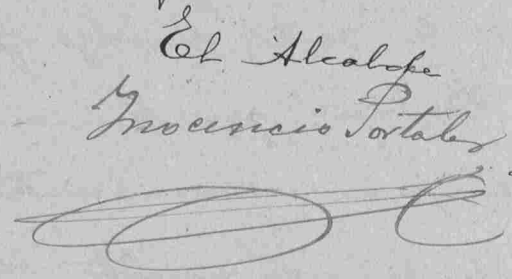 El Alcalde
Inocencio Portales